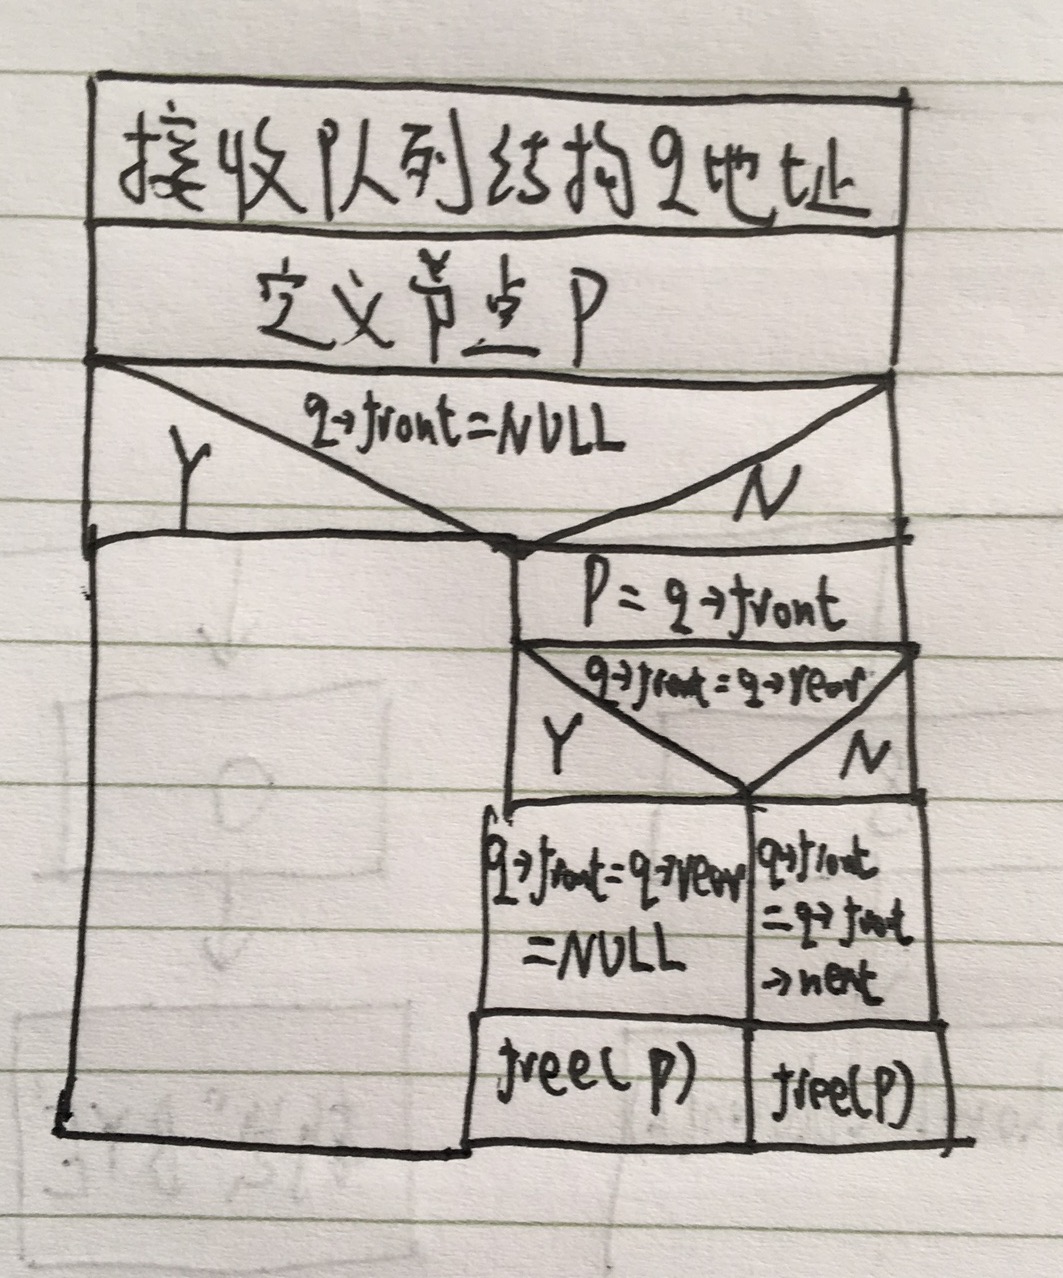 接收队列结构q地址
定义节点P
q→front=NULL
Y
N
P=q→front
q→front=q→rear
Y
N
q→front=q→rear
=NULL
q→front
=q→front
→next
free(P)
free(P)